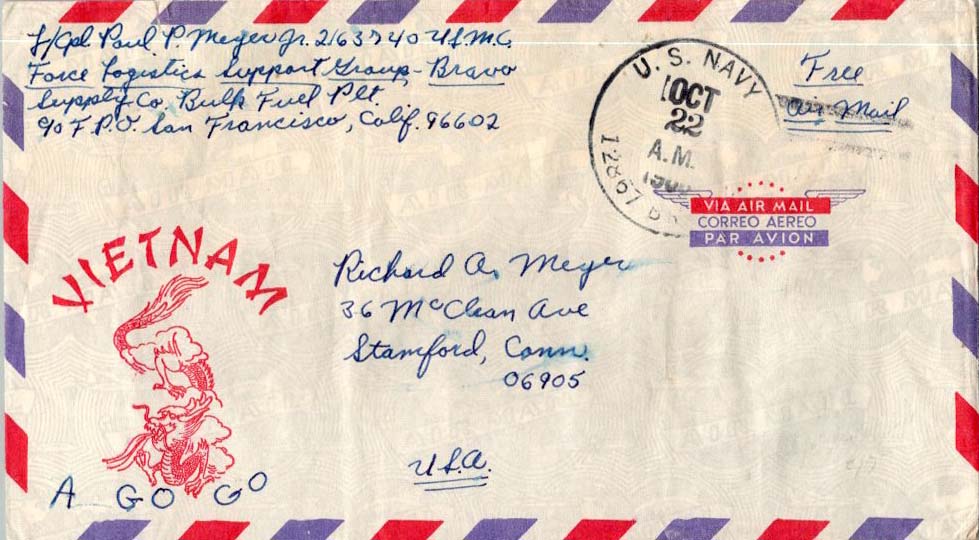 L/Cpl. Paul P. Meyer Jr. 2163740 U.S.M.C.
Force Logistics Support Group - Bravo
Supply Co. Bulk Fuel Plt.
c/o F.P.O. San Francisco, Calif. 96602
U. S. NAVY
OCT
22
A.M.
12867
Free
Air Mail
VIA AIR MAIL
CORREO AEREO
PAR AVION
VIETNAM
A GO GO
Richard A. Meyer
36 McClean Ave
Stamford, Conn.
06905
U.S.A.